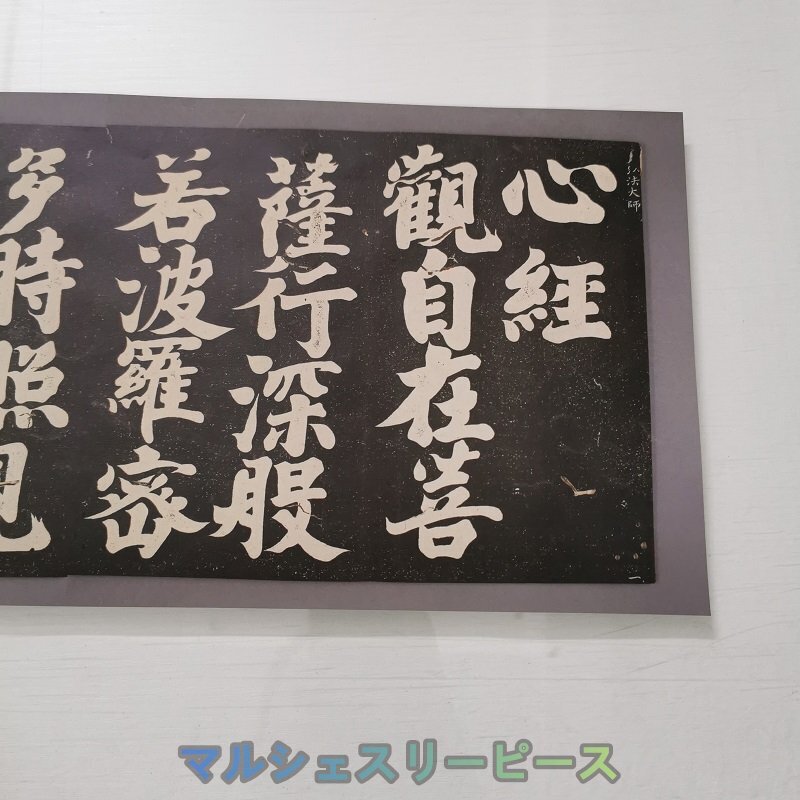 弘法大師
心經
觀自在菩
薩行深般
若波羅密
多時照見
一
マルシェスリーピース